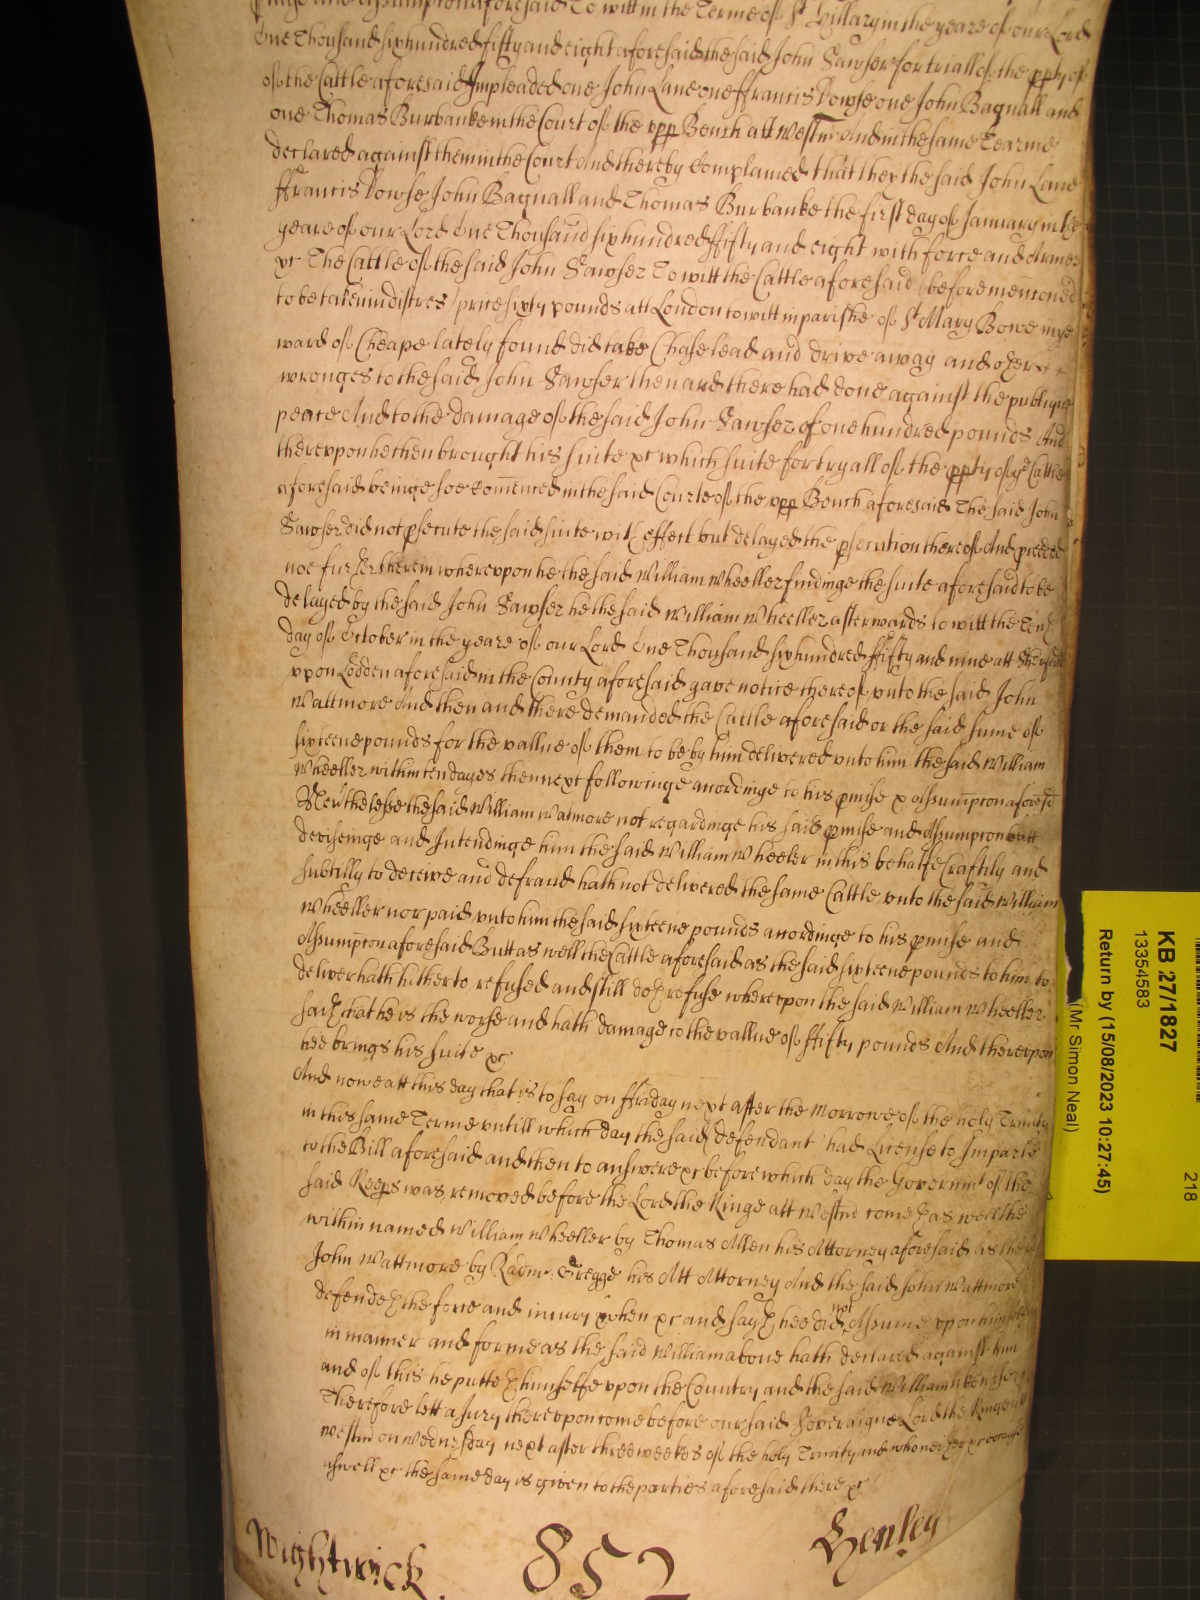 Assumpton aforesaid To witt in the Terme of St Hillary in the yeare of our Lord
One Thousand six hundred fifty and eight aforesaid the said John Sawser for triall of the ppty of
of the Cattle aforesaid Impleaded one John Lane one ffrancis Dowse one John Bagnall and
one Thomas Burbanke in the Court of the vpp Bench att Westmr And in the same Tearme
declared against them in the Court And thereby Complained that they the said John Lane
ffrancis Dowse John Bagnall and Thomas Burbanke the first day of January in the
yeare of our Lord One Thousand six hundred ffifty and eight with force and Armes
xc The Cattle of the said John Sawser To witt the Cattle aforesaid before mencioned
to be taken in distres price sixty pounds att London to witt in parishe of St Mary Bowe in ye
ward of Cheape lately found did take Chase lead and drive away and other
wronges to the said John Sawser then and there had done against the publique
peace And to the damage of the said John Sawser of one hundred pounds And
therevpon he then brought his suite xc which suite for tryall of the ppty of ye Cattle
aforesaid beinge soe Comenced in the said Courte of the vpp Bench aforesaid The said John
Sawser did not psecute the said suite with effect but delayed the psecution thereof And pceeded
noe further therein wherevpon he the said William Wheeller findinge the suite aforesaid to be
delayed by the said John Sawser he the said William Wheeller afterwards to witt the Tenth
day of October in the yeare of our Lord One Thousand six hundred ffifty and nine att Sherfeild
vpon Loddon aforesaid in the County aforesaid gave notice thereof vnto the said John
Wattmore And then and there demanded the Cattle aforesaid or the said sume of
sixteene pounds for the vallue of them to be by him delivered vnto him the said William
Wheeller within ten dayes then next followinge accordinge to his pmise & Assumpton aforesd
Neverthelesse the said William Watmore not regardinge his said pmise and Assumpton butt
deviseinge and Intendinge him the said William Wheeler in this behalfe Craftily and
subtilly to deceive and defraud hath not delivered the same Cattle vnto the said William
Wheeller nor paid vnto him the said sixteene pounds accordinge to his pmise and
Assumpton aforesaid Butt as well the Cattle aforesaid as the said sixteene pounds to him to
deliver hath hitherto refused and still doth refuse wherevpon the said William Wheeller
saith that he is the worse and hath damage to the vallue of ffifty pounds And therevpon
hee brings his suite xc
And nowe att this day that is to say on ffriday next after the Morrowe of the holy Trinity
in this same Terme vntill which day the said defendant had License to Imparle
to the Bill aforesaid and then to answere xc before which day the Governmt of the
said Keeps was removed before the Lord the Kinge att Westm come th as well the
within named William Wheeller by Thomas Allen his Attorney aforesaid as the
John Wattmore by Gregge his Att Attorney And the said John Wattmore
defendeth the force and iniury when xc and sayth hee did not Assume vpon himselfe
in manner and forme as the said William above hath declared against him
and of this he putteth himselfe vpon the Country and the said William likewise
Therefore lett a Jury therevpon come before our said Soveraigne Lord the Kinge att
Westm on Wednesday next after three weekes of the holy Trinity and who neither xc because
aswell xc the same day is given to the parties aforesaid there xc
Wightwick 852 Henley
KB 27/1827
13354583
Return by (15/08/2023 10:27:45)
(Mr Simon Neal)
218